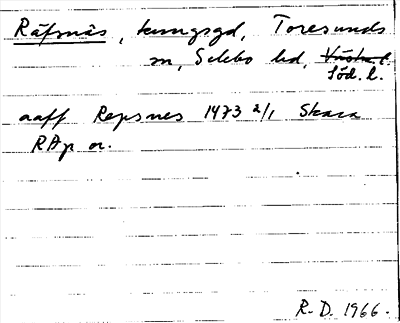 Räfsnäs, kungsgd, Toresunds
sn, Selebo hd, Västra l.
Söd. l.
aaff Repsnes 1473 2/1 Skara
RAp or.
R.D. 1966.